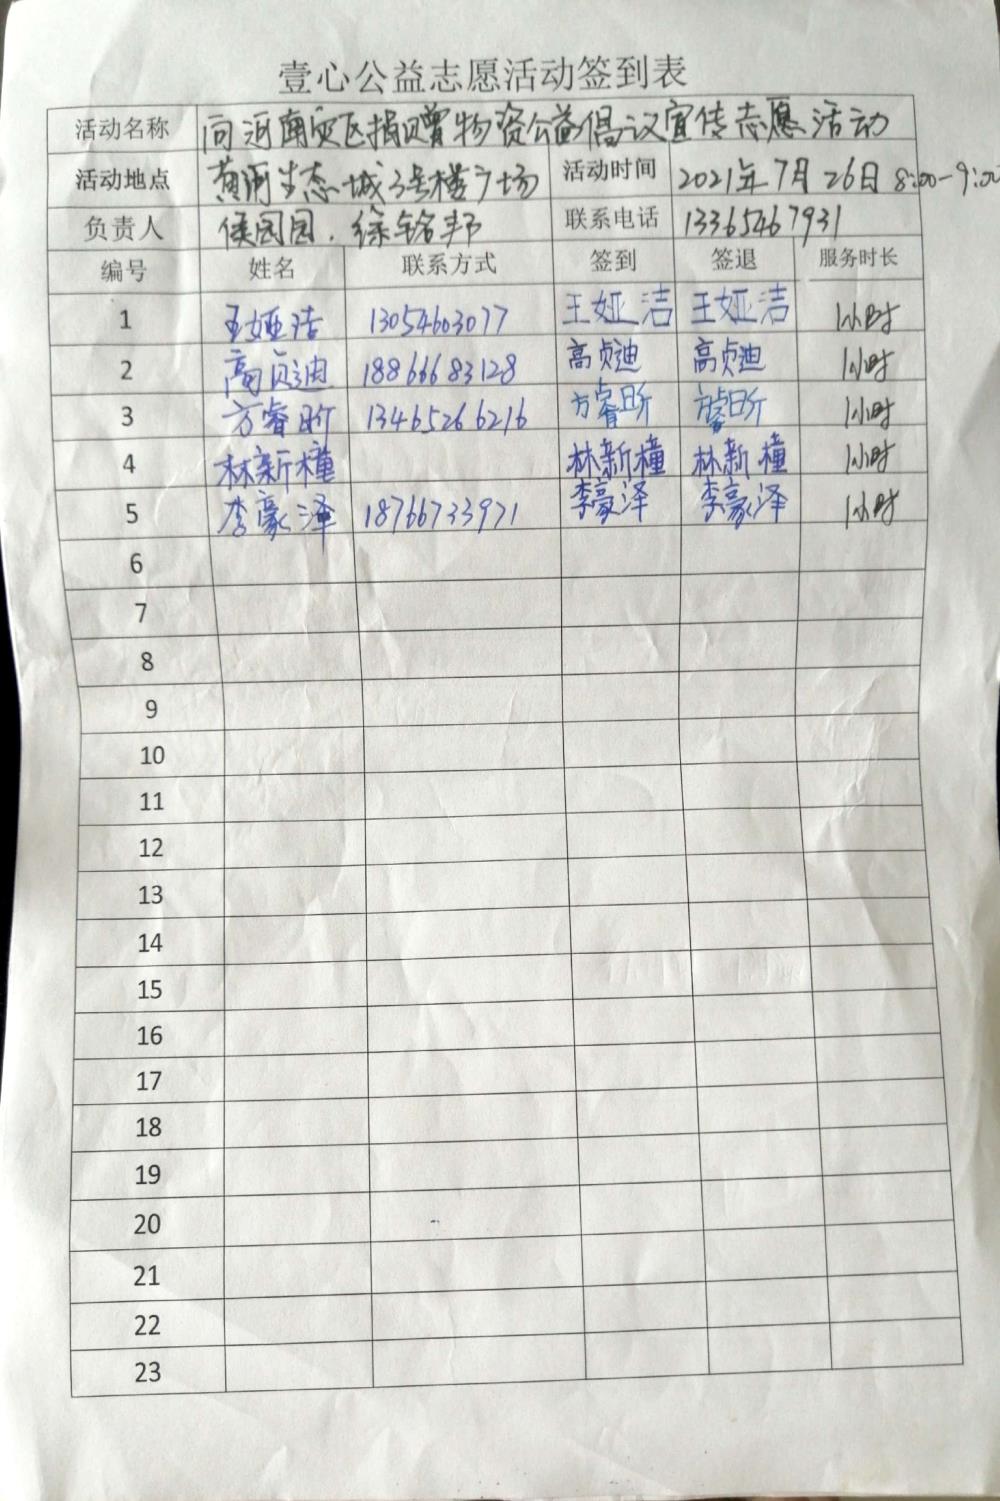 壹心公益志愿活动签到表
活动名称 向河南灾区捐赠物资公益倡议宣传志愿活动
活动地点 黄河生态城3号楼广场 活动时间 2021年7月26日 8:00-9:00
负责人 侯园园.徐铭邦 联系电话 13365467931
编号 姓名 联系方式 签到 签退 服务时长
1 王娅洁 13054603077 王娅洁 王娅洁 1小时
2 高贞迪 18866683128 高贞迪 高贞迪 1小时
3 方睿昕 13465266216 方睿昕 方睿昕 1小时
4 林新橦 林新橦 林新橦 1小时
5 李豪泽 18766733971 李豪泽 李豪泽 1小时
6
7
8
9
10
11
12
13
14
15
16
17
18
19
20
21
22
23